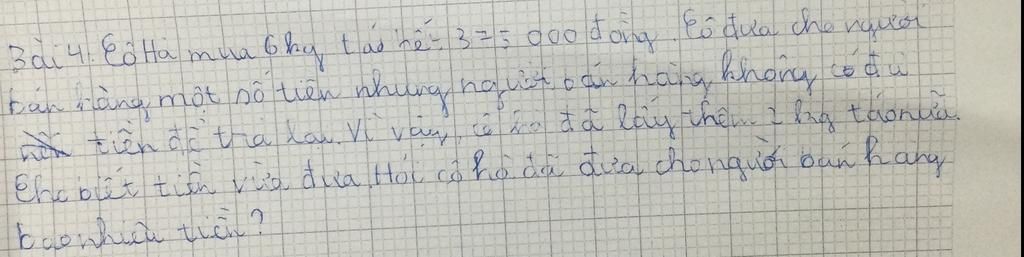 Bài 4. Cô Hà mua 6 kg táo hết 375 000 đồng. Cô đưa cho người
bán hàng một số tiền nhưng người bán hàng không có đủ
tiền để trả lại. Vì vậy, cô Hà đã lấy thêm 2 kg táo nữa.
Cho biết tiền vừa đưa. Hỏi cô Hà đã đưa cho người bán hàng
bao nhiêu tiền?